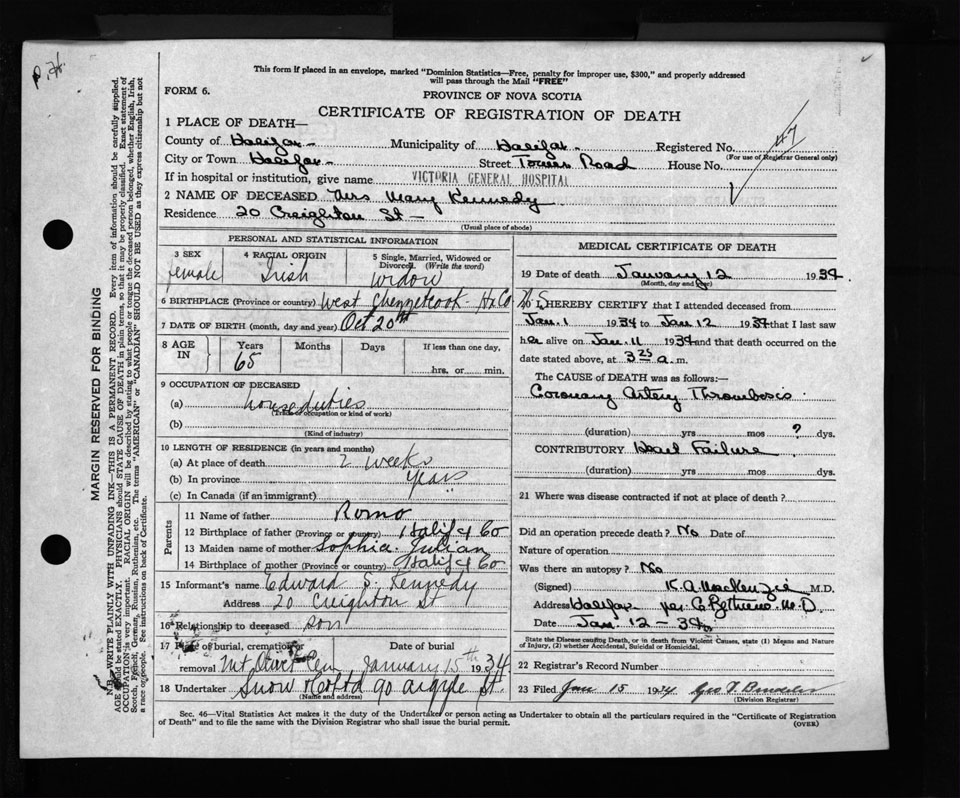 P.H.
This form if placed in an envelope, marked "Dominion Statistics—Free, penalty for improper use, $300," and properly addressed
will pass through the Mail "FREE"
FORM 6.
PROVINCE OF NOVA SCOTIA
CERTIFICATE OF REGISTRATION OF DEATH
1 PLACE OF DEATH—
County of Halifax - Municipality of Halifax - Registered No. 47
(For use of Registrar General only)
City or Town Halifax - Street Tower Road House No.
If in hospital or institution, give name VICTORIA GENERAL HOSPITAL
2 NAME OF DECEASED Mrs Mary Kennedy
Residence 20 Creighton St -
(Usual place of abode)
MARGIN RESERVED FOR BINDING
N.B. WRITE PLAINLY WITH UNFADING INK—THIS IS A PERMANENT RECORD. Every item of information should be carefully supplied.
AGE should be stated EXACTLY. PHYSICIANS should STATE CAUSE OF DEATH in plain terms, so that it may be properly classified. Exact statement of
OCCUPATION is very important. RACIAL ORIGIN will be described by stating to what people or tongue the deceased person belonged, whether English, Irish,
Scotch, French, German, Russian, Ruthenian, etc. The terms "AMERICAN" or "CANADIAN" SHOULD NOT BE USED as they express citizenship but not
a race or people. See instructions on back of Certificate.
PERSONAL AND STATISTICAL INFORMATION
3 SEX
female
4 RACIAL ORIGIN
Irish
5 Single, Married, Widowed or
Divorced. (Write the word)
Widow
6 BIRTHPLACE (Province or country) West Chezzetcook Hx Co N S
7 DATE OF BIRTH (month, day and year) Oct 20th
8 AGE IN
Years Months Days If less than one day,
65 hrs. or min.
9 OCCUPATION OF DECEASED
(a) house duties
(Trade, occupation or kind of work)
(b)
(Kind of industry)
10 LENGTH OF RESIDENCE (in years and months)
(a) At place of death 2 weeks
(b) In province years
(c) In Canada (if an immigrant) "
Parents
11 Name of father Romo
12 Birthplace of father (Province or country) Halifax Co
13 Maiden name of mother Sophia Julian
14 Birthplace of mother (Province or country) Halifax Co
15 Informant's name Edward S. Kennedy
Address 20 Creighton St
16 Relationship to deceased son
17 Place of burial, cremation or removal Mt Olivet Cem
Date of burial
January 15th 1934
18 Undertaker Snow & Co Ltd 90 Argyle St.
(Name and address)
MEDICAL CERTIFICATE OF DEATH
19 Date of death January 12 1934
(Month, day and year)
20 I HEREBY CERTIFY that I attended deceased from
Jan. 1 1934 to Jan 12 1934 that I last saw
her alive on Jan. 11 1934 and that death occurred on the
date stated above, at 3 25 a.m.
The CAUSE OF DEATH was as follows:—
Coronary Artery Thrombosis.
(duration) yrs mos ? dys.
CONTRIBUTORY Heart Failure
(duration) yrs mos dys.
21 Where was disease contracted if not at place of death ?
Did an operation precede death ? No Date of
Nature of operation
Was there an autopsy ? No
(Signed) K.A. MacKenzie M.D.
Address Halifax per M.D.
Date Jan. 12 - 34
State the Disease causing Death, or in death from Violent Causes, state (1) Means and Nature
of Injury, (2) whether Accidental, Suicidal or Homicidal.
22 Registrar's Record Number
23 Filed Jan 15 1934 Geo T.
(Division Registrar)
Sec. 46—Vital Statistics Act makes it the duty of the Undertaker or person acting as Undertaker to obtain all the particulars required in the "Certificate of Registration
of Death" and to file the same with the Division Registrar who shall issue the burial permit.
(OVER)